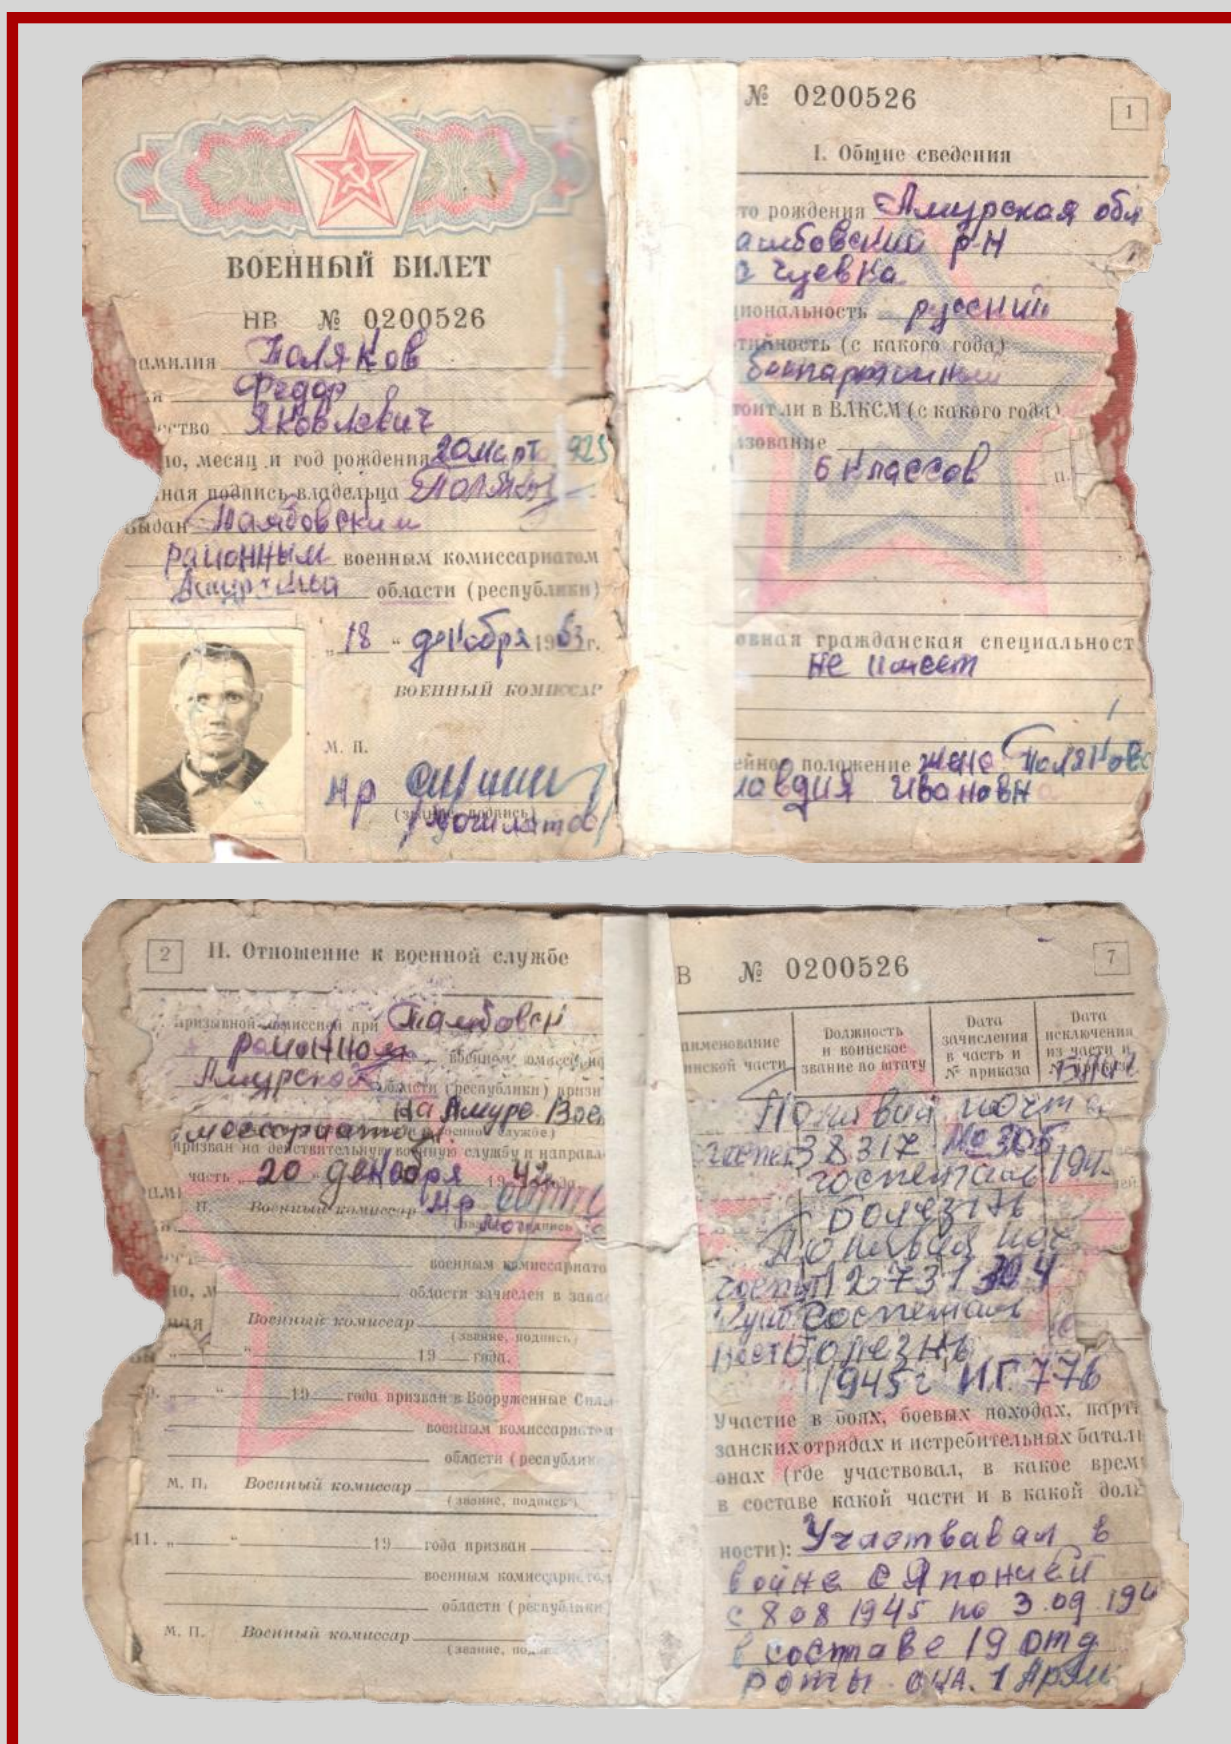 ВОЕННЫЙ БИЛЕТ
НВ № 0200526
амилия Поляков
Федор
ество Яковлевич
ло, месяц и год рождения 20 март 925
ная подпись владельца Поляков
Выдан Тамбовским
районным военным комиссариатом
Амурской области (республики)
„18" декабря 1963 г.
ВОЕННЫЙ КОМИССАР
М. П.
(звание, подпись)
№ 0200526
1
I. Общие сведения
то рождения Амурская обл
амбовский р-н
гуевка
циональность русский
тийность (с какого года)
беспартийный
тоит ли в ВЛКСМ (с какого года)
зование
6 классов
овная гражданская специальност
не имеет
ейное положение жена Полякова
лавдия Ивановн
2
II. Отношение к военной службе
Призывной комиссией при Тамбовск
районном военном комисса
Амурской области (республики) призн
на Амуре Вое
военной службе)
призван на действительную военную службу и направл
часть „20" декабря 1942 года.
П. Военный комиссар
(звание, подпись)
военным комиссариато
области зачислен в запа
Военный комиссар
(звание, подпись)
" 19 года.
" 19 года призван в Вооруженные Силы
военным комиссариатом
области (республики
М. П. Военный комиссар
(звание, подпись)
11. „ " 19 года призван
военным комиссариатом
области (республики
М. П. Военный комиссар
(звание,
В № 0200526
7
аименование
инской части
Должность
и воинское
звание по штату
Дата
зачисления
в часть и
№ приказа
Дата
исключения
из части и
№ приказа
почта
38317
госпиталь 194
болезнь
12731
госпиталь
болезнь
1945 г
Участие в боях, боевых походах, парти
занских отрядах и истребительных батальи
онах (где участвовал, в какое врем
в составе какой части и в какой долж
ности): Участвавал в
войне с Японией
с 8 08 1945 по 3.09.194
в составе 19 отд
роты 1 Арми